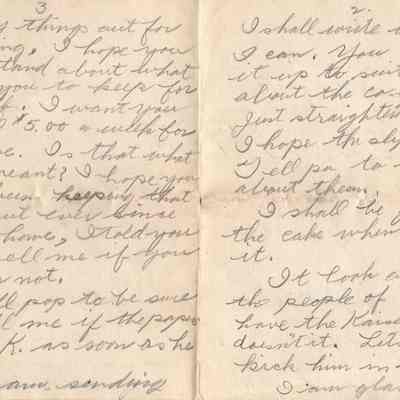 3
g things out for
ng. I hope you
stand about what
you to keep for
t. I want you
$5.00 a week for
e. Is that what
meant? I hope you
been keeping that
out ever since
home, I told you
tell me if you
r not.
ll pop to be sure
ll me if the papers
K. as soon as he
am sending
2.
I shall write
I can. You
it up to suit
about the ca
Just straighten
I hope th sly
Tell pa to
about them.
I shall be g
the cake when
it.
It look a
the people of
have "the Kais
doesn't it. Let
kick him in
I am gla